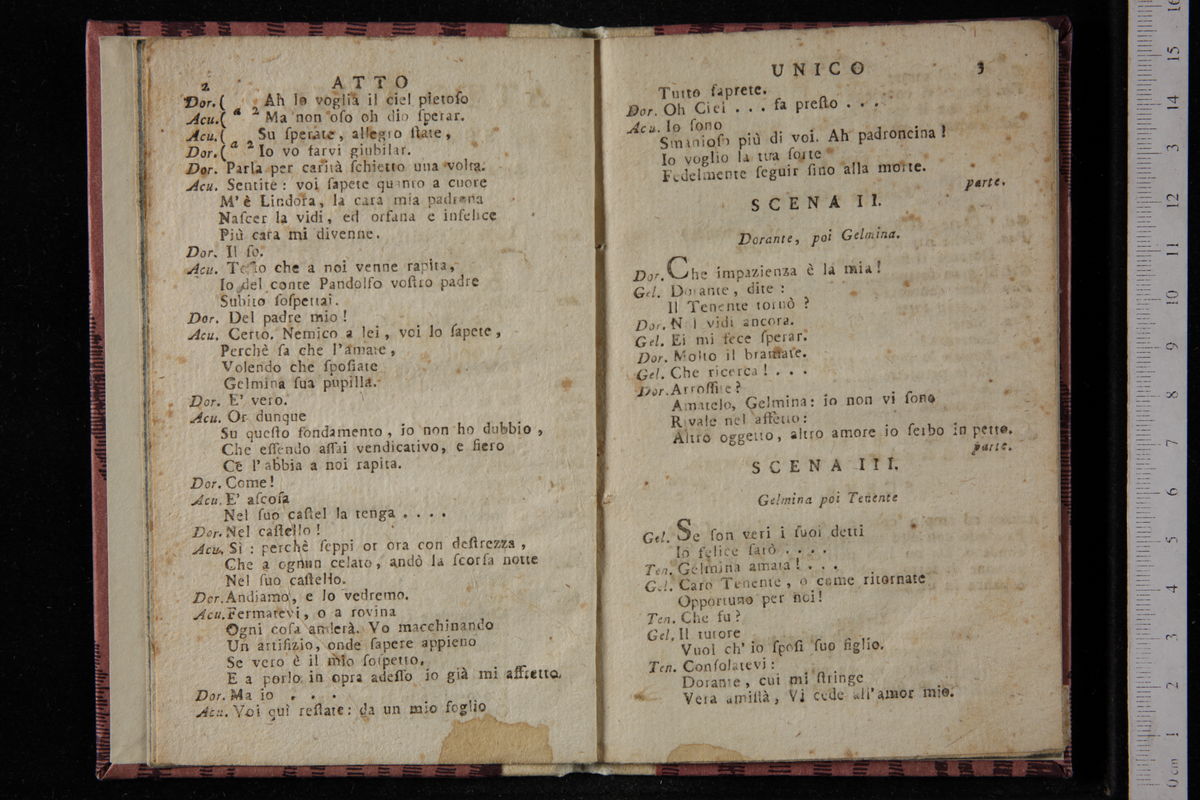 2 ATTO
Dor. ( a 2 Ah lo voglia il ciel pietoſo
Acu. ( Ma non oſo oh dio ſperar.
Acu. ( a 2 Su ſperate, allegro ſtate,
Dor. ( Io vo farvi giubilar.
Dor. Parla per carità ſchietto una volta.
Acu. Sentite: voi ſapete quanto a cuore
M' è Lindora, la cara mia padrona
Naſcer la vidi, ed orfana e infelice
Più cara mi divenne.
Dor. Il ſo.
Acu. Toſto che a noi venne rapita,
Io del conte Pandolfo voſtro padre
Subito ſoſpettai.
Dor. Del padre mio!
Acu. Certo. Nemico a lei, voi lo ſapete,
Perchè ſa che l'amate,
Volendo che ſpoſiate
Gelmina ſua pupilla.
Dor. E' vero.
Acu. Or dunque
Su queſto fondamento, io non ho dubbio,
Che eſſendo aſſai vendicativo, e fiero
Ce l'abbia a noi rapita.
Dor. Come!
Acu. E' aſcoſa
Nel ſuo caſtel la tenga . . . .
Dor. Nel caſtello!
Acu. Sì: perchè ſeppi or ora con deſtrezza,
Che a ognun celato, andò la ſcorſa notte
Nel ſuo caſtello.
Dor. Andiamo, e lo vedremo.
Acu. Fermatevi, o a rovina
Ogni coſa anderà. Vo macchinando
Un artifizio, onde ſapere appieno
Se vero è il mio ſoſpetto,
E a porlo in opra adeſſo io già mi affretto.
Dor. Ma io . . .
Acu. Voi quì reſtate: da un mio foglio
UNICO 3
Tutto ſaprete.
Dor. Oh Ciel . . . fa preſto . . .
Acu. Io ſono
Smanioſo più di voi. Ah padroncina!
Io voglio la tua ſorte
Fedelmente ſeguir ſino alla morte.
parte.
SCENA II.
Dorante, poi Gelmina.
Dor. Che impazienza è la mia!
Gel. Dorante, dite:
Il Tenente tornò?
Dor. Nol vidi ancora.
Gel. Ei mi fece ſperar.
Dor. Molto il bramate.
Gel. Che ricerca! . . .
Dor. Arroſſite?
Amatelo, Gelmina: io non vi ſono
Rivale nel affetto:
Altro oggetto, altro amore io ſerbo in petto.
parte.
SCENA III.
Gelmina poi Tenente
Gel. Se ſon veri i ſuoi detti
Io felice ſarò . . . .
Ten. Gelmina amata! . . .
Gel. Caro Tenente, o come ritornate
Opportuno per noi!
Ten. Che fu?
Gel. Il tutore
Vuol ch' io ſpoſi ſuo figlio.
Ten. Conſolatevi:
Dorante, cui mi ſtringe
Vera amiſtà, Vi cede all'amor mio.
0 cm 1 2 3 4 5 6 7 8 9 10 11 12 13 14 15 16